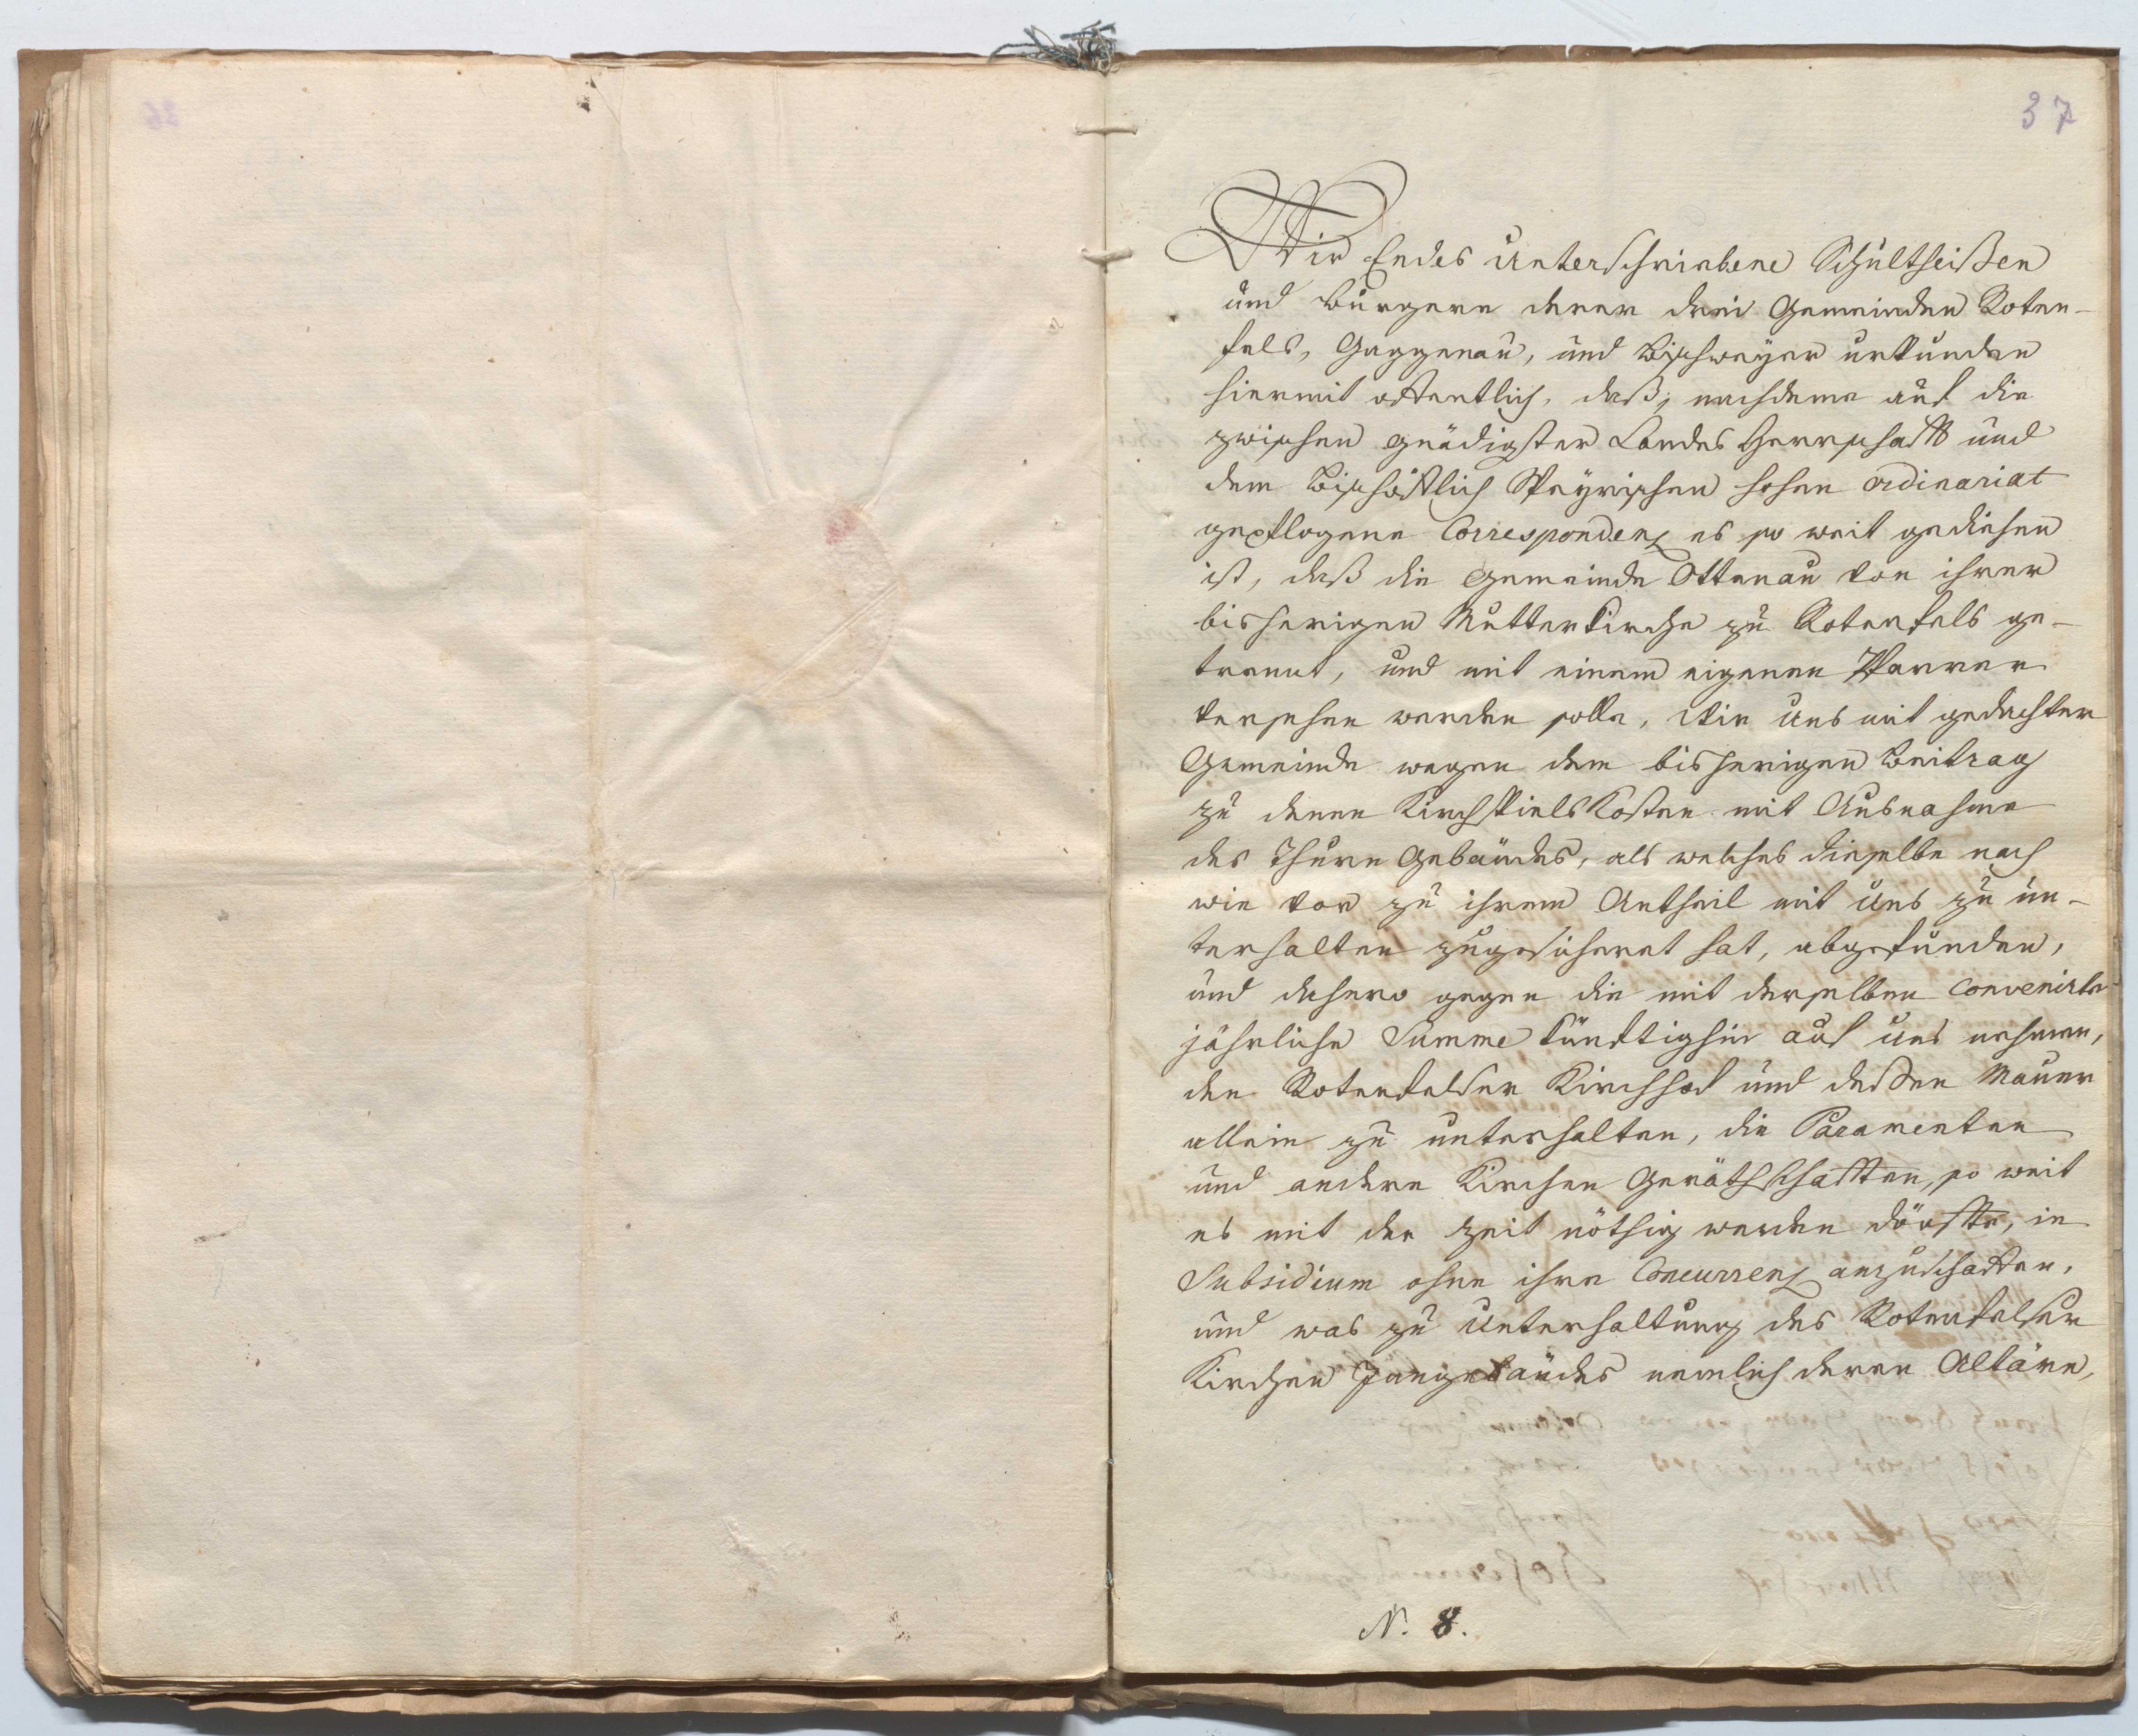 37
Wir Endes Unterschriebene Schultheißen
und Burgere derer drei Gemeinden Roten-
fels, Gaggenau, und Bischweyer urkunden
hiermit offentlich, daß, nachdeme auf die
zwischen gnädigster Landes Herrschafft und
dem Bischöfflich Speyrischen hohen ordinariat
gepflogene Correspondenz es so weit gediehen
ist, daß die Gemeinde Ottenau von ihrer
bisherigen Mutterkirche zu Rotenfels ge-
trennt, und mit einem eigenen Pfarrer
versehen werden solle, Wir Uns mit gedachter
Gemeinde wegen dem bisherigen Beitrag
zu denen KirchspielsKosten mit Ausnahme
des Thurn Gebäudes, als welches dieselbe nach
wie vor zu ihrem Antheil mit Uns zu un-
terhalten zugesicheret hat, abgefunden,
und dahero gegen die mit derselben Convenirte
jährliche Summe künftighin auf Uns nehmen,
den Rotenfelser Kirchhof und deßen Mauer
allein zu unterhalten, die Paramenten
und andere Kirchen Geräthschafften, so weit
es mit der Zeit nöthig werden dörffte, in
Subsidium ohne ihre Concurrenz anzuschaffen,
und was zu Unterhaltung des Rotenfelser
Kirchen Langgebäudes nemlich deren Altäre,
N. 8.